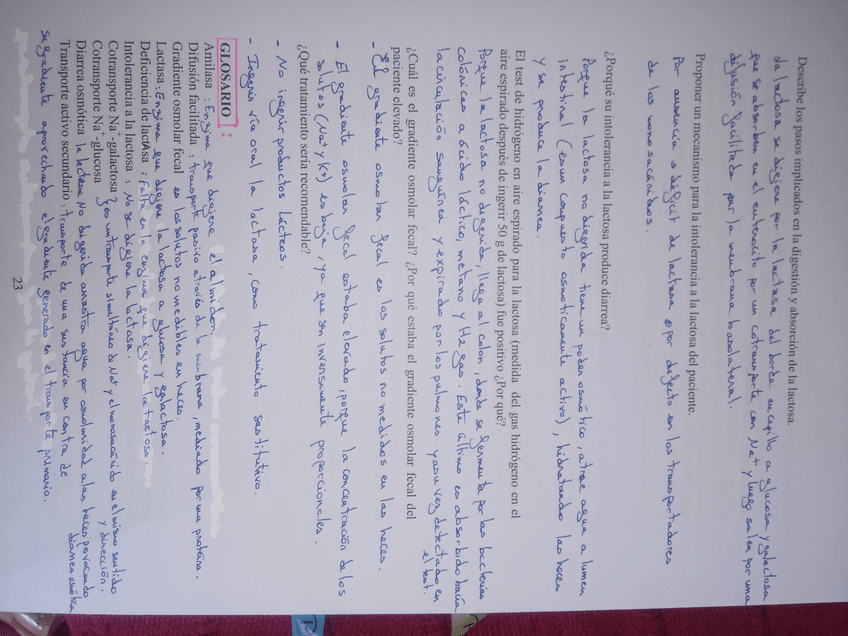 Describe los pasos implicados en la digestión y absorción de la lactosa.
la lactosa se digiere por la lactasa del borde en cepillo a glucosa y galactosa
que se absorben en el enterocito por un cotransporte con Na+ y luego salen por una
difusión facilitada por la membrana basolateral.
Proponer un mecanismo para la intolerancia a la lactosa del paciente.
Por ausencia o déficit de lactasa o por defecto en los transportadores
de los monosacáridos.
¿Porqué su intolerancia a la lactosa produce diarrea?
Porque la lactosa no digerida tiene un poder osmótico, atrae agua a lumen
intestinal (es un compuesto osmoticamente activo), hidratando las heces
y se produce la diarrea.
El test de hidrógeno en aire espirado para la lactosa (medida del gas hidrógeno en el
aire espirado después de ingerir 50 g de lactosa) fue positivo ¿Por qué?
Porque la lactosa no digerida, llega al colon, donde se fermenta por las bacterias
colónicas a ácido láctico, metano y H2 gas. Este último es absorbido hacia
la circulación sanguínea y expirado por los pulmones y a su vez detectado en
el test.
¿Cuál es el gradiente osmolar fecal? ¿Por qué estaba el gradiente osmolar fecal del
paciente elevado?
- El gradiente osmolar fecal es los solutos no medidos en las heces.
- El gradiente osmolar fecal estaba elevado, porque la concentración de los
solutos (Na+ y K+) es baja, ya que son inversamente proporcionales.
¿Qué tratamiento sería recomendable?
- No ingerir productos lácteos.
- Ingerir vía oral la lactasa, como tratamiento sustitutivo.
GLOSARIO :
Amilasa : Enzima que digiere el almidón.
Difusión facilitada : transporte pasivo através de la membrana, mediado por una proteína.
Gradiente osmolar fecal es los solutos no medibles en heces.
Lactasa : Enzima que digiere la lactosa a glucosa y galactosa.
Deficiencia de lactAsa : Falta en la enzima que digiere la lactosa.
Intolerancia a la lactosa : No se digiere la lactosa.
Cotransporte Na+-galactosa } es un transporte simultáneo de Na+ y el monosacárido en el mismo sentido
Cotransporte Na+-glucosa y dirección.
Diarrea osmótica la lactosa no digerida arrastra agua por osmolaridad a las heces provocando
diarrea osmótica
Transporte activo secundario : transporte de una sustancia en contra de
su gradiente aprovechando el gradiente generado en el transporte primario.
23